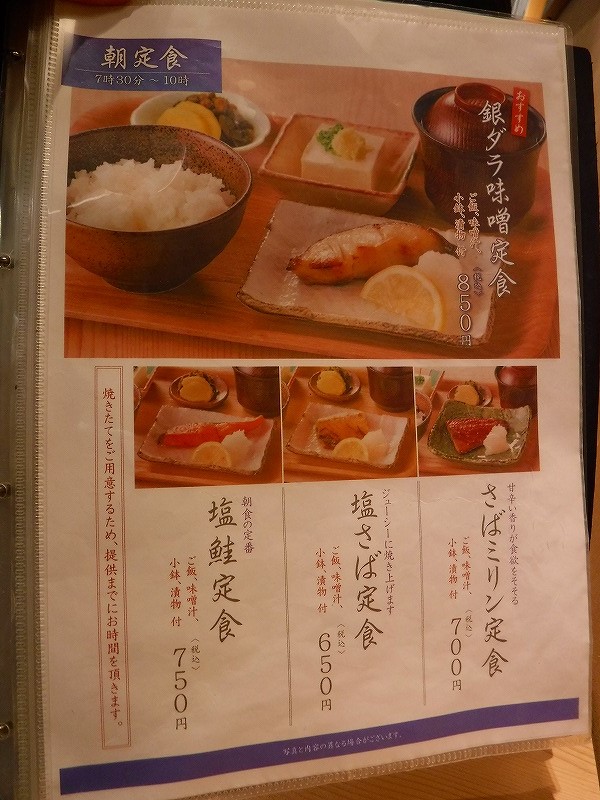 朝定食
7時30分 ～ 10時
おすすめ
銀ダラ味噌定食
ご飯、味噌汁、
小鉢、漬物 付
〈税込〉
850円
甘辛い香りが食欲をそそる
さばミリン定食
ご飯、味噌汁、
小鉢、漬物 付
〈税込〉
700円
ジューシーに焼き上げます
塩さば定食
ご飯、味噌汁、
小鉢、漬物 付
〈税込〉
650円
朝食の定番
塩鮭定食
ご飯、味噌汁、
小鉢、漬物 付
〈税込〉
750円
焼きたてをご用意するため、提供までにお時間を頂きます。
写真と内容の異なる場合がございます。